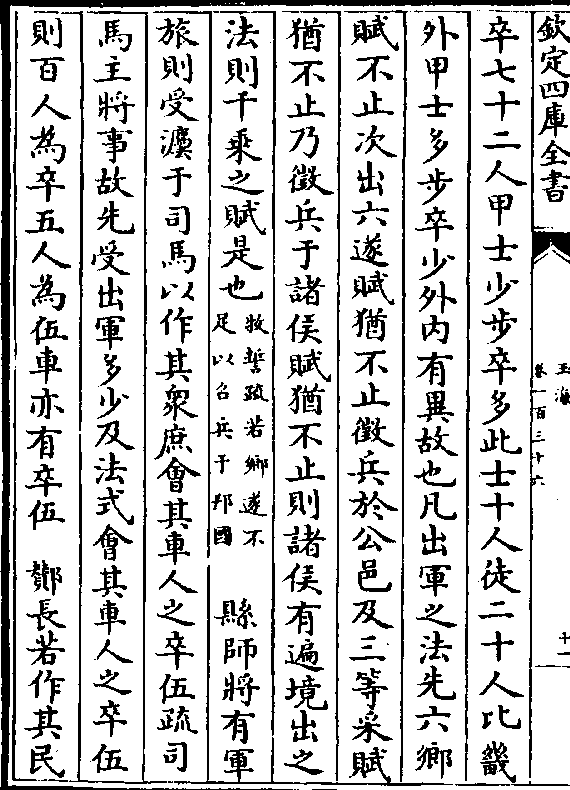 欽定四庫全書
玉海
卷一百三十六
十一
卒七十二人甲士少步卒多此士十人徒二十人比畿
外甲士多步卒少外内有異故也凡出軍之法先六鄉
賦不止次出六遂賦猶不止徵兵於公邑及三等采賦
猶不止乃徵兵于諸侯賦猶不止則諸侯有遍境出之
法則千乗之賦是也
牧誓疏若鄉遂不
足以召兵于邦國
縣師將有軍
旅則受灋于司馬以作其衆庶會其車人之卒伍疏司
馬主將事故先受出軍多少及法式會其車人之卒伍
則百人為卒五人為伍車亦有卒伍　酇長若作其民